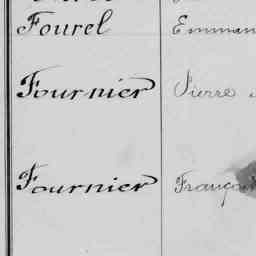 Fourel Emman
Fournier Pierre
Fournier Françoi